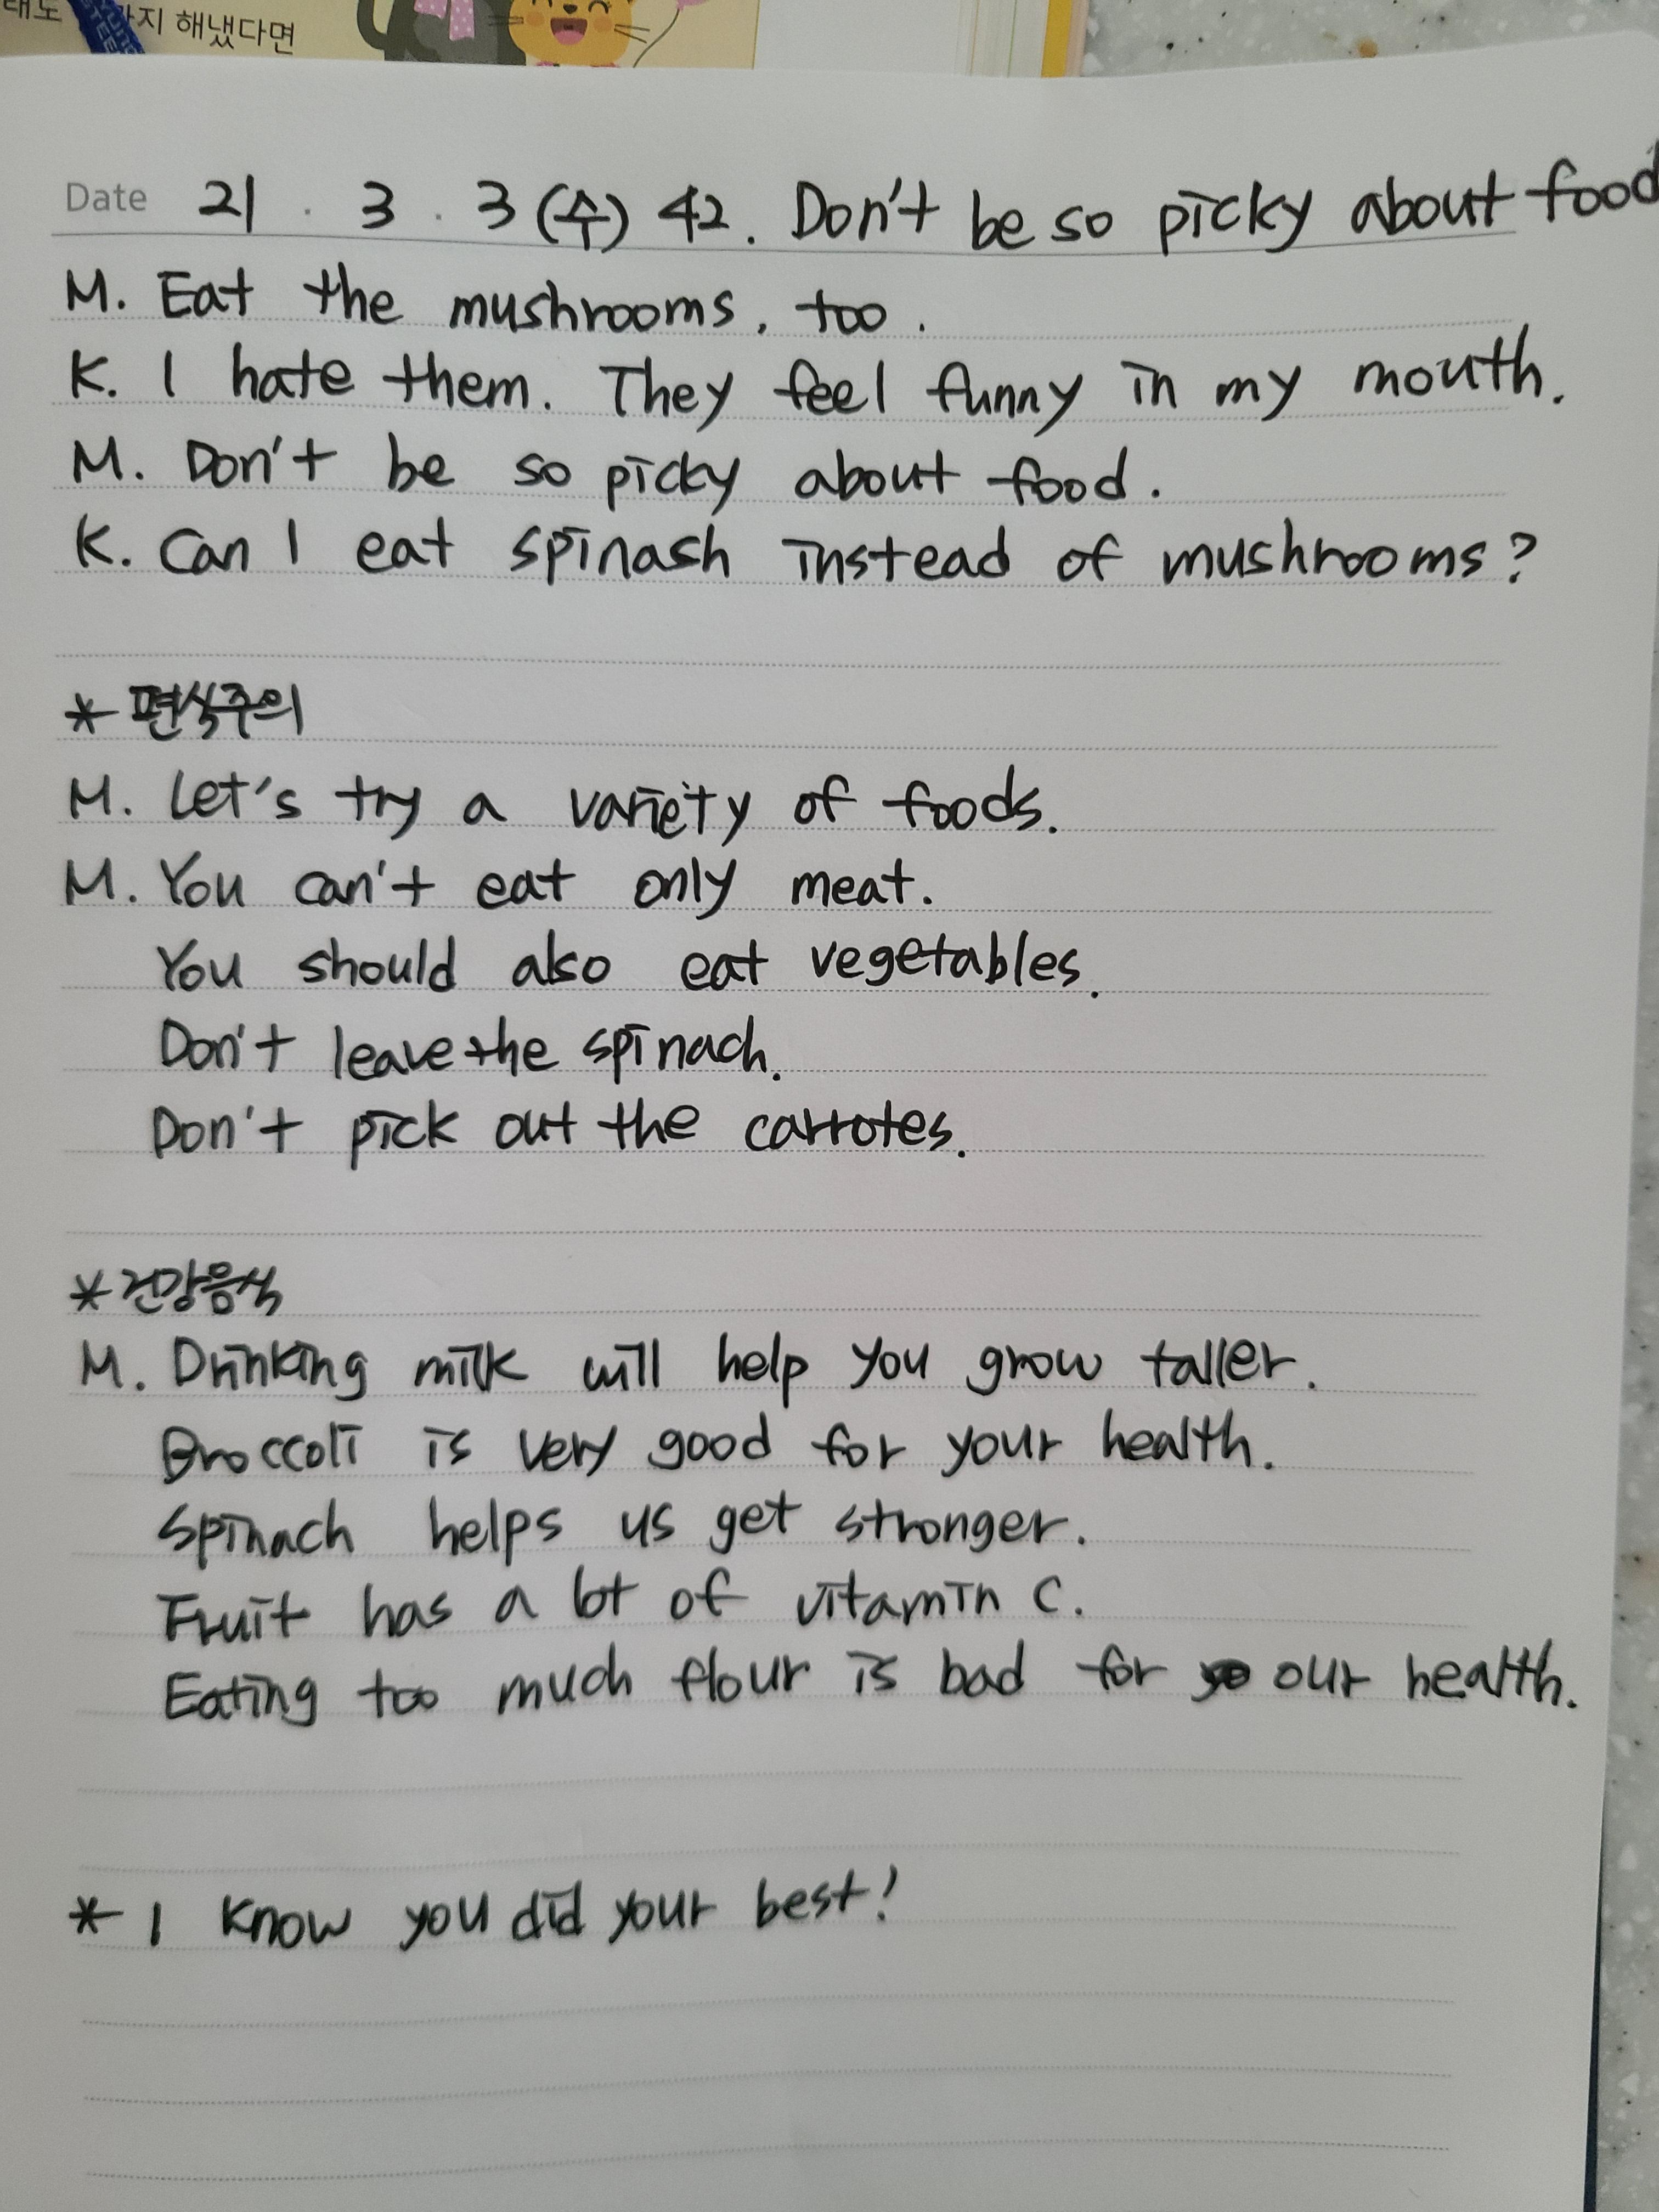 지 해냈다면
Date 21 . 3 . 3 (수) 42. Don't be so picky about food
M. Eat the mushrooms, too.
K. I hate them. They feel funny in my mouth.
M. Don't be so picky about food.
K. Can I eat spinash instead of mushrooms?
* 편식주의
M. Let's try a variety of foods.
M. You can't eat only meat.
You should also eat vegetables.
Don't leave the spinach.
Don't pick out the carrotes.
* 건강음식
M. Drinking milk will help you grow taller.
Broccoli is very good for your health.
Spinach helps us get stronger.
Fruit has a lot of vitamin C.
Eating too much flour is bad for our health.
* I know you did your best!